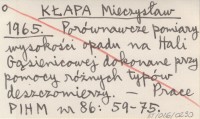 KŁAPA Mieczysław
1965. Porównawcze pomiary
wysokości opadu na Hali
Gąsienicowej dokonane przy
pomocy różnych typów
deszczomierzy. — Prace
PIHM nr 86: 59-75.